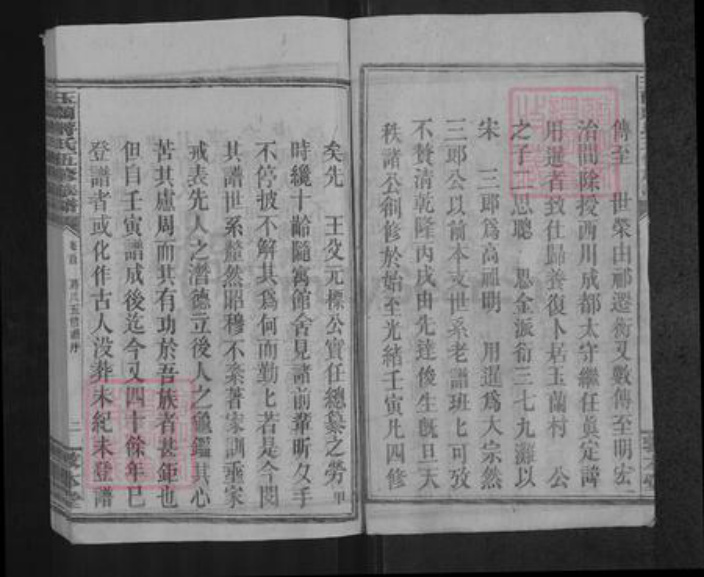 傳至　世榮由祁遷衡又數傳至明宏
治間除授西川成都太守繼任真定諱
用暹者致仕歸養復卜居玉蘭村　公
之子二思聰　思金派衍三七九難以
宋　三郎爲高祖明　用暹爲大宗然
三郎公以前本支世系老譜班匕可攷
不贅清乾隆丙戌由先達俊生旣旦天
秩諸公創修於始至光緒壬寅凡四修
矣先　王父元櫟公實任總纂之勞甲
時纔十齡隨寓館舍見諸前輩昕夕手
不停披不解其爲何而勤匕若是今閱
其譜世系釐然昭穆不紊著家訓垂家
戒表先人之潛德立後人之龜鑑其心
苦其慮周而其有功於吾族者甚鉅也
但自壬寅譜成後迄今又四十餘年已
登譜者或化作古人没葬未紀未登譜
玉蘭蔣氏五修族譜
卷首
蔣氏五修譜序
二
敦本堂